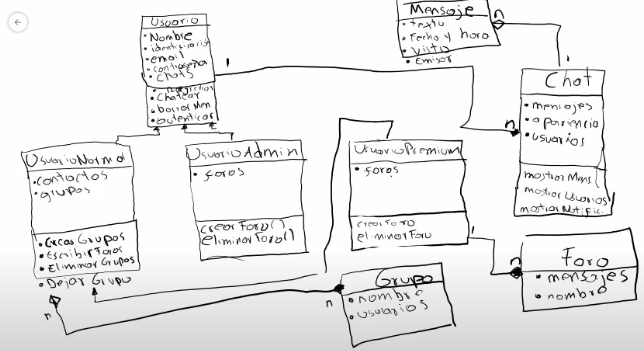 Usuario
• Nombre
• email
• contraseña
• Chats
• Chatear
• autenticar
Mensaje
• texto
• Fecha y hora
• Visto
• Emisor
n
1
Chat
• mensajes
• apariencia
• usuarios
mostrarMens(
mostrarUsuarios
mostrarNotific.
1
n
UsuarioNormal
• contactos
• grupos
• Crear Grupos
• Escribir Foros
• Eliminar Grupos
• Dejar Grupo
UsuarioAdmin
• foros
crearForo()
eliminarForo()
UsuarioPremium
• foros
crearForo
eliminarForo
1
n
Foro
• mensajes
• nombre
Grupo
• nombre
• usuarios
n
n